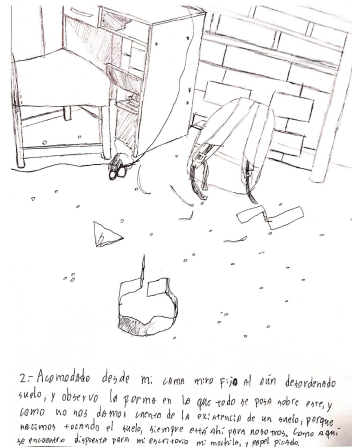 2.- Acomodado desde mi cama miro fijo al aún desordenado
suelo, y observo la forma en la que todo se posa sobre este, y
como no nos damos cuenta de la existencia de un suelo, porque
nacimos tocando el suelo, siempre está ahí para nosotros, como aquí
se encuentra dispuesto para mi escritorio mi mochila, y papel picado.